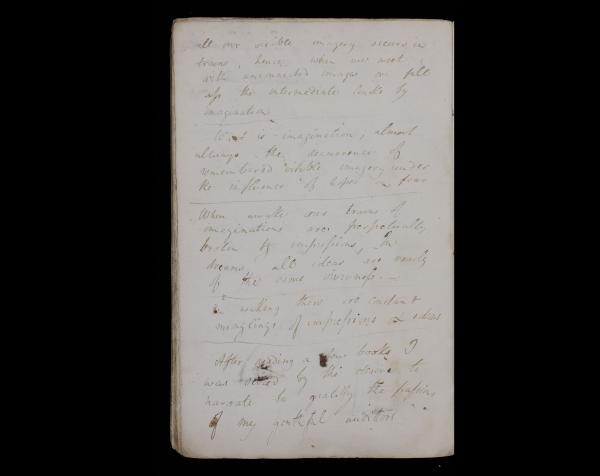 all our visible imagery occurs in
trains, hence when we meet
with unconnected images we fill
up the intermediate links by
imagination
What is imagination, almost
always the occurrence of
remembered visible imagery under
the influence of hopes or fear
When awake our trains of
imaginations are perpetually
broken by impressions, In
dreams, all ideas are nearly
of the same vividness. —
In waking there are constant
minglings of impressions & ideas
After reading a few books I
was seized by the desire to
narrate to gratify the passions
of my youthful auditors